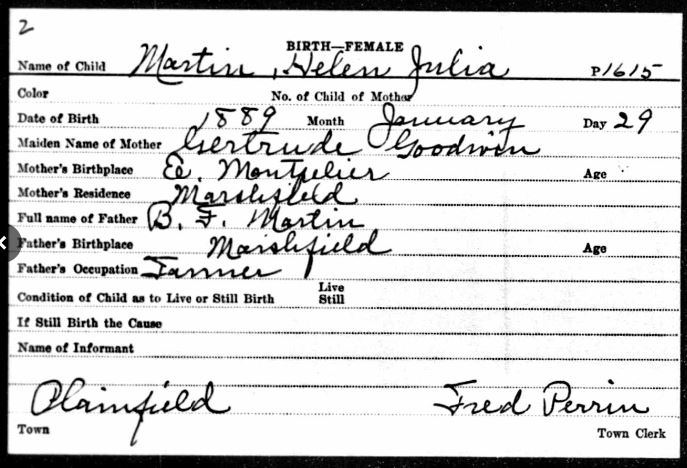 2
BIRTH—FEMALE
Name of Child Martin, Helen Julia P1615
Color No. of Child of Mother
Date of Birth 1889 Month January Day 29
Maiden Name of Mother Gertrude Goodwin
Mother's Birthplace E. Montpelier Age
Mother's Residence Marshfield
Full name of Father B. F. Martin
Father's Birthplace Marshfield Age
Father's Occupation Farmer
Condition of Child as to Live or Still Birth Live
Still
If Still Birth the Cause
Name of Informant
Plainfield Fred Perrin
Town Town Clerk